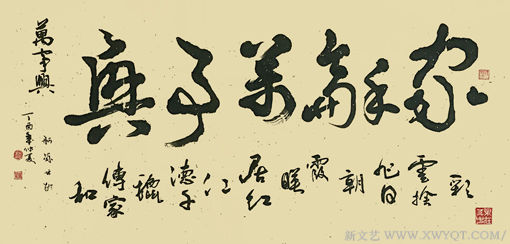 家龢萬事興
彩
雲
旭日
朝
霞
映
紅
居
仁
德
傳家
和
萬事興
丁酉年仲夏
新文艺 - WWW.XWYQT.COM/